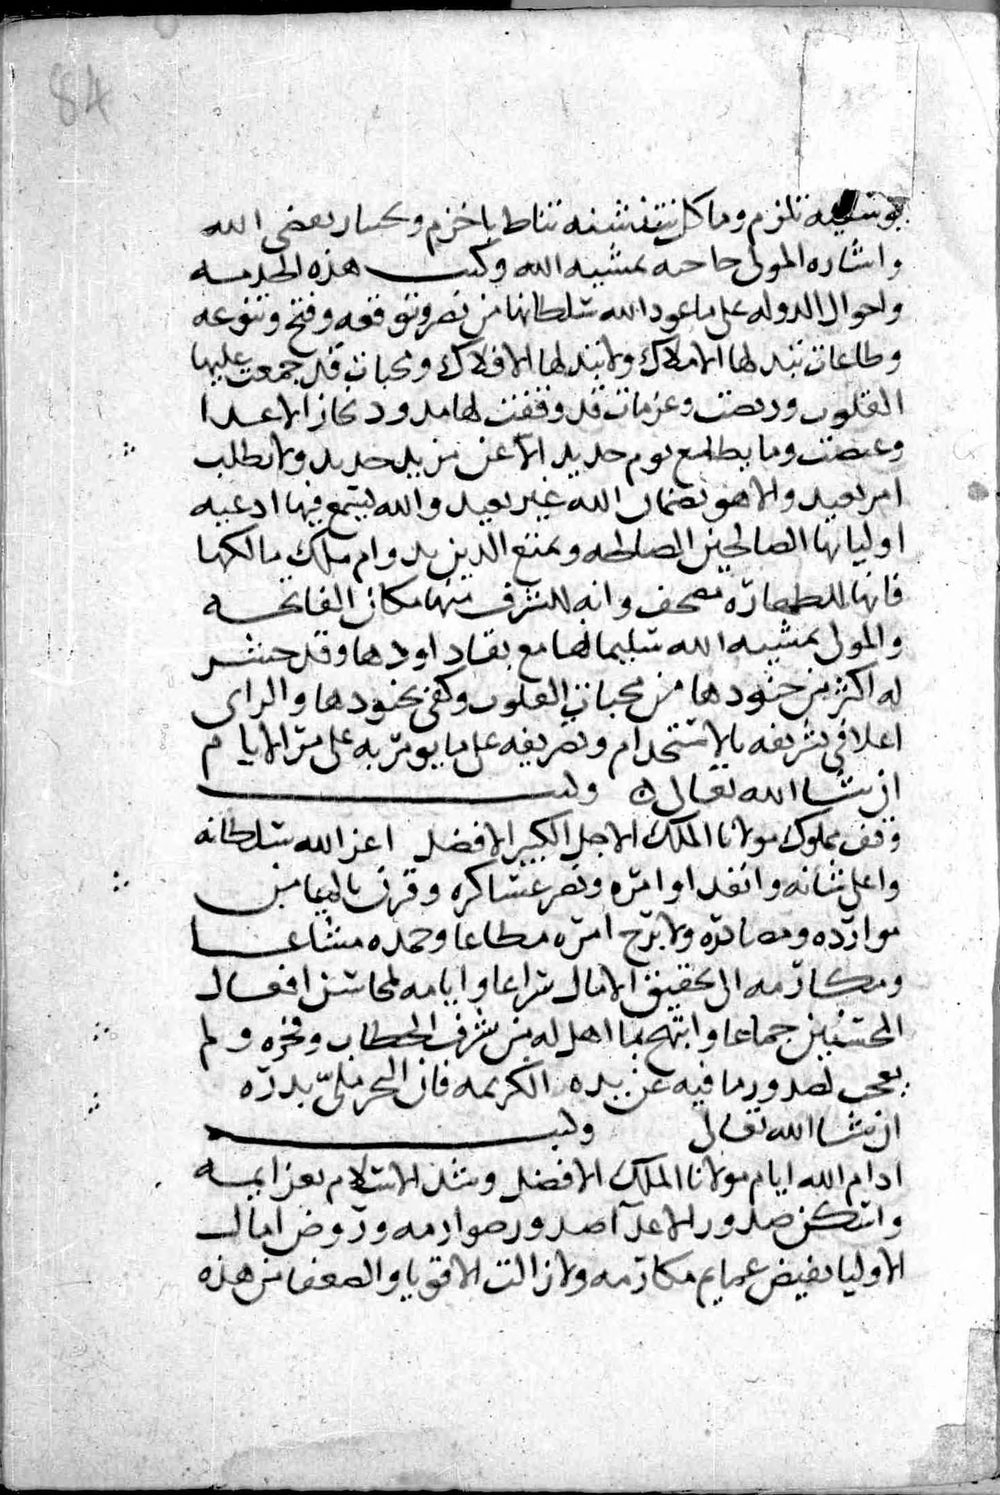 84
تلزم وما كل شنشنه تناط باخزم وكسار بعض الله
واشاره المولى حاحه بمشيه الله وكتب هذه الخدمه
واحوال الدوله على ما عود الله سلطانها من نصر وتوقعه وفتح وتنوعه
وطاعات تبذلها الاملاك ولا تبذلها الافلاك ومحبات قد جمعت عليها
القلوب ورصت وعزمات قد وقفت لها مدود بحار الاعدا
وغيضت وما يطلع يوم جديد الا عن مزيد جديد ولا يطلب
امر بعيد والا هو بضمان الله غير بعيد والله يسمع فيها ادعيه
اوليائها الصالحين الصالحه ويمتع الدين بدوام ملك مالكها
فانها للطهاره مصحف وانه للشرف منها مكان الفاتحه
والمولى بمشيه الله سليمانها مع بقاء داودها وقد حشر
له اكثر من جنودها من محبات القلوب وكفى بجنودها والراى
اعلا فى تشريفه بالاستخدام وتصريفه على ما يومر به على مر الايام
ان شا الله تعالى ولــــه
وقف مملوك مولانا الملك الاجل الكبير الافضل اعز الله سلطانه
واعلى شانه وانفذ اوامره ونصر عساكره وقرن بالميامن
موارده ومصادره ولا برح امره مطاعا وحمده مشاعا
ومكارمه الى تحقيق الامال سراعا وايامه لمحاسن افعال
المحسنين جماعا وابتهج بما اهل له من شرف الخطاب وفخره ولم
يعجب لصدور ما فيه عن يده الكريمه فان البحر ملىّ بدره
ان شا الله تعالى ولــــه
ادام الله ايام مولانا الملك الافضل وشد الاسلام بعزايمه
واسكن صدور الاعدا صدور صوارمه وروض امال
الاوليا بفيض غمايم مكارمه ولا زالت الاقويا والضعفا من هذه